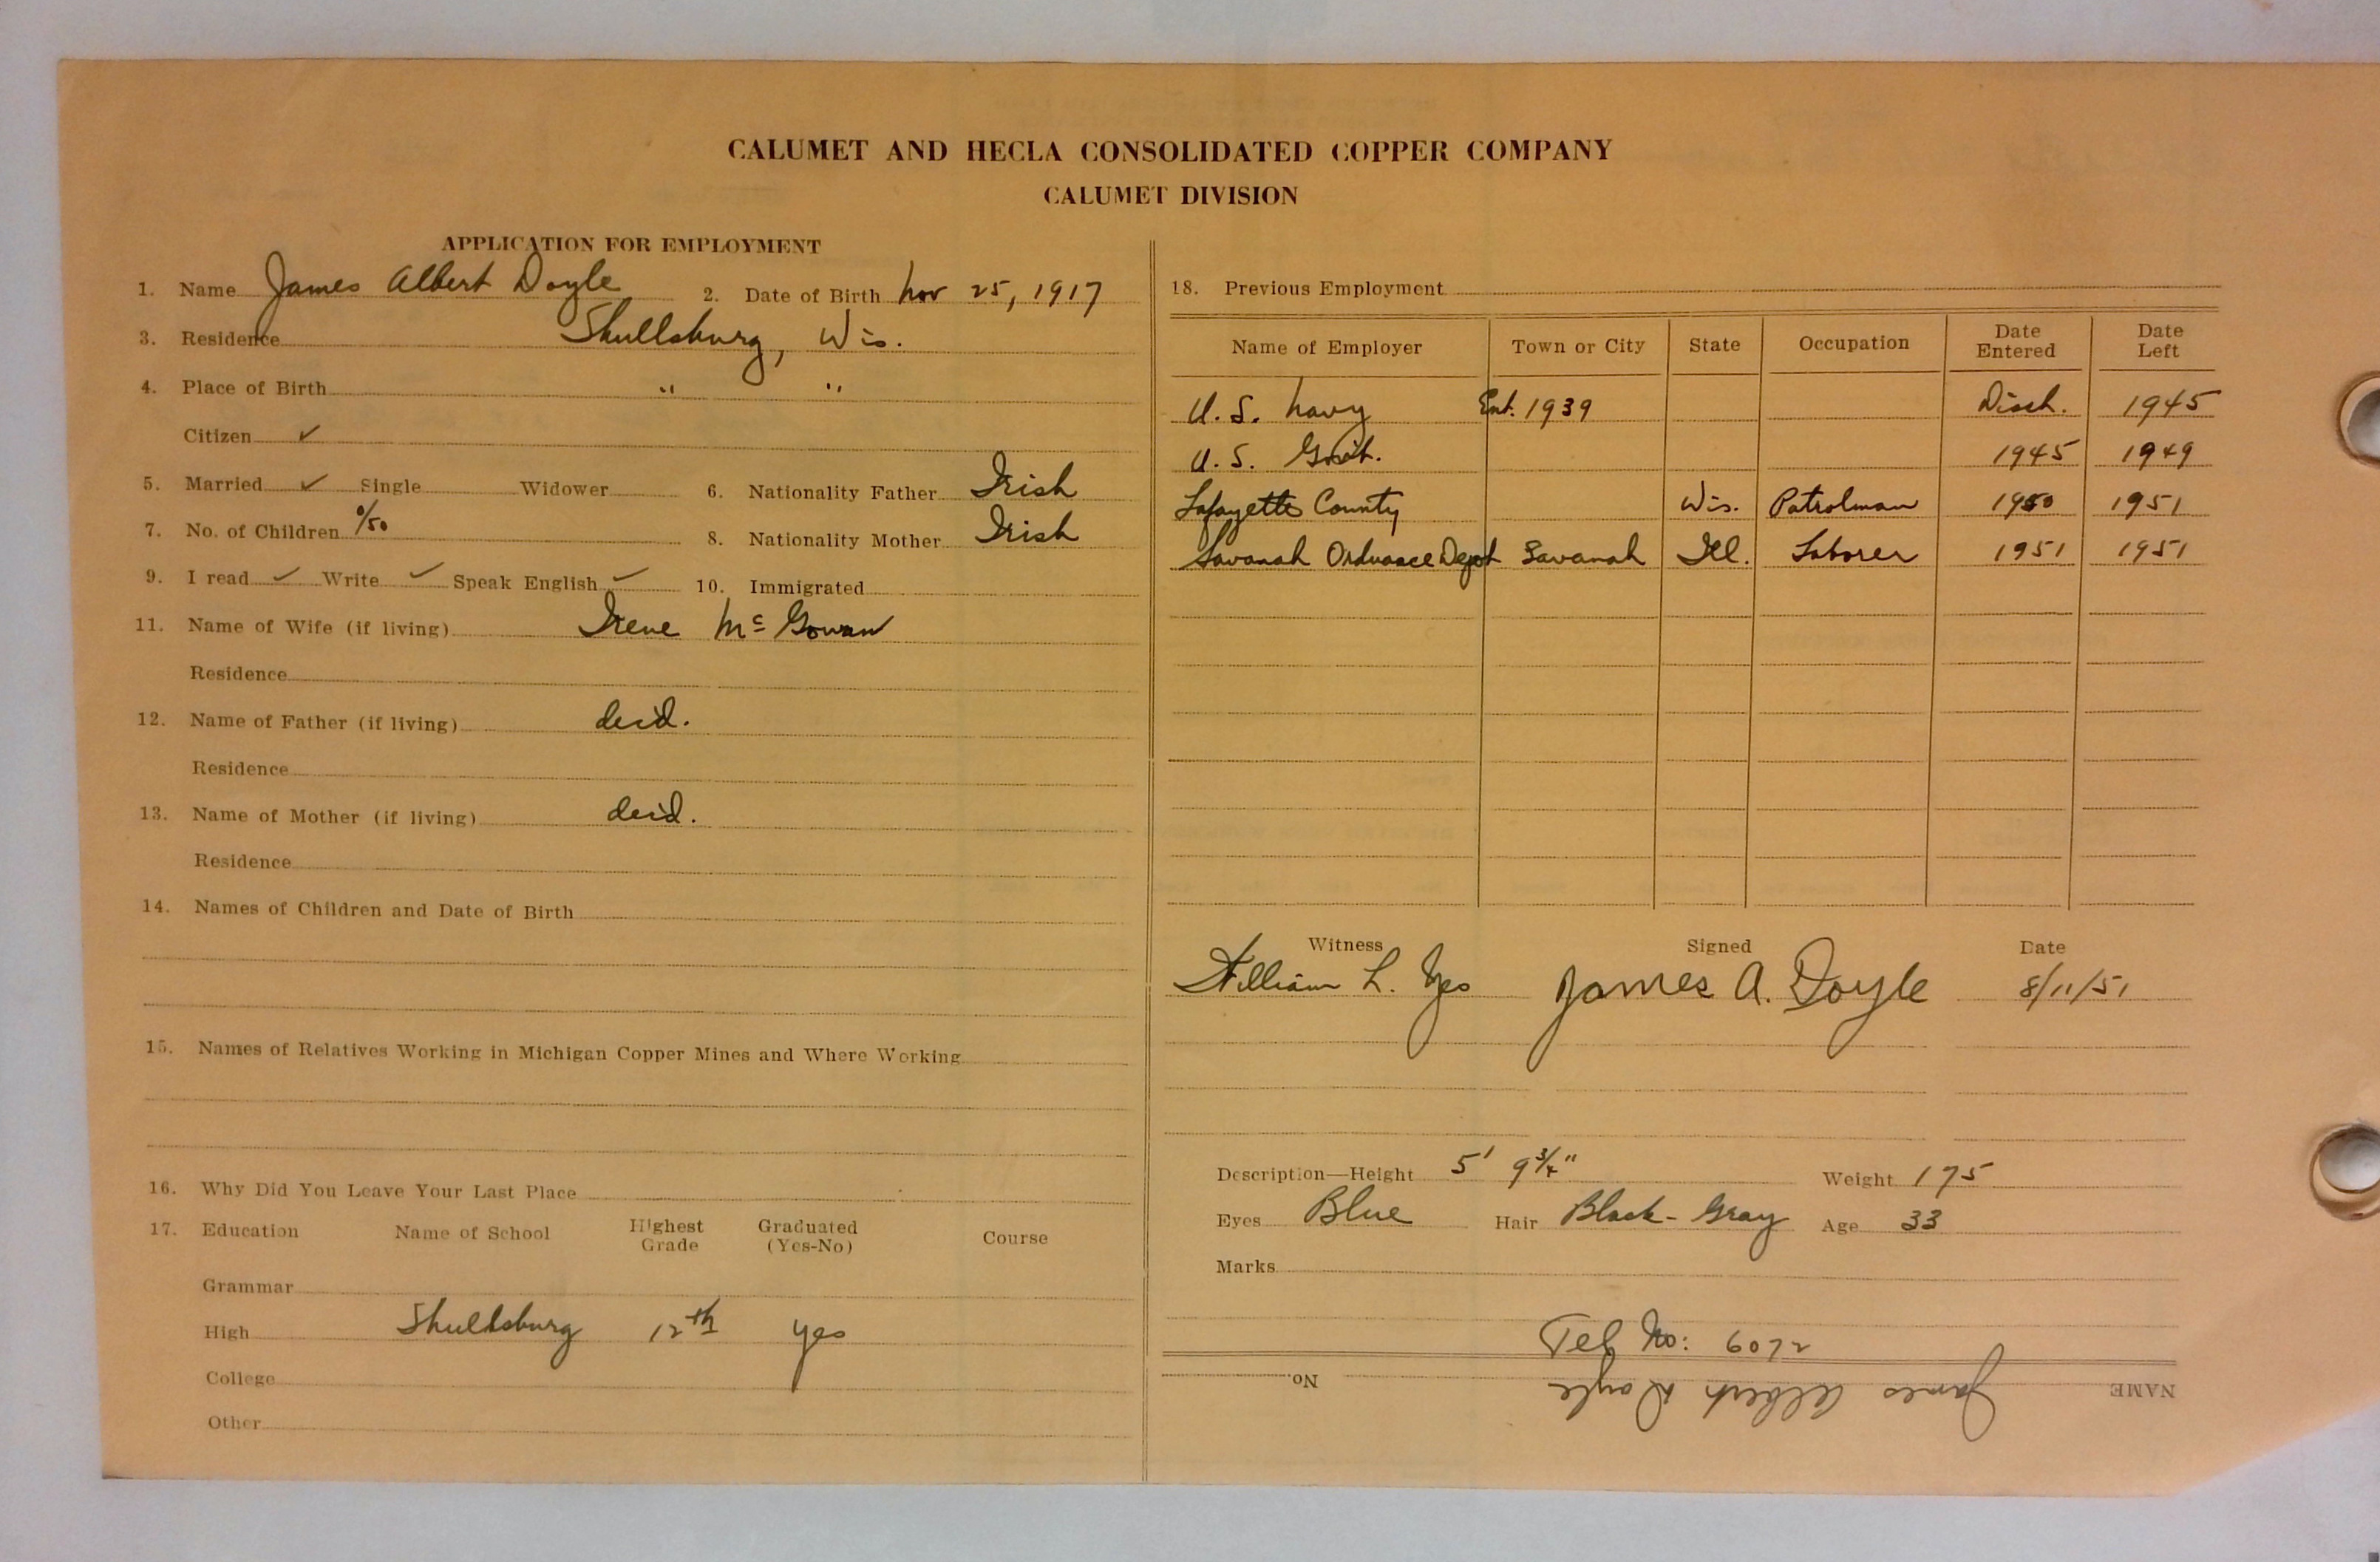 CALUMET AND HECLA CONSOLIDATED COPPER COMPANY
CALUMET DIVISION
APPLICATION FOR EMPLOYMENT
1. Name James Albert Doyle 2. Date of Birth Nov 25, 1917
3. Residence Shullsburg, Wis.
4. Place of Birth " "
Citizen ✓
5. Married ✓ Single Widower 6. Nationality Father Irish
7. No. of Children 8. Nationality Mother Irish
9. I read ✓ Write ✓ Speak English ✓ 10. Immigrated
11. Name of Wife (if living) Irene Mc Gowan
Residence
12. Name of Father (if living) dec'd.
Residence
13. Name of Mother (if living) dec'd.
Residence
14. Names of Children and Date of Birth
15. Names of Relatives Working in Michigan Copper Mines and Where Working
16. Why Did You Leave Your Last Place
17. Education Name of School Highest Grade Graduated (Yes-No) Course
Grammar
High Shullsburg 12th yes
College
Other
18. Previous Employment
Name of Employer Town or City State Occupation Date Entered Date Left
U.S. Navy Ent. 1939 Disch. 1945
U.S. Gov't. 1945 1949
Lafayette County Wis. Patrolman 1950 1951
Savanah Ordnance Depot Savanah Ill. Laborer 1951 1951
Witness Signed Date
William L. James A. Doyle 8/11/51
Description—Height 5' 9 3/4" Weight 175
Eyes Blue Hair Black - Gray Age 33
Marks
Tel No: 6072
NAME James Albert Doyle No.